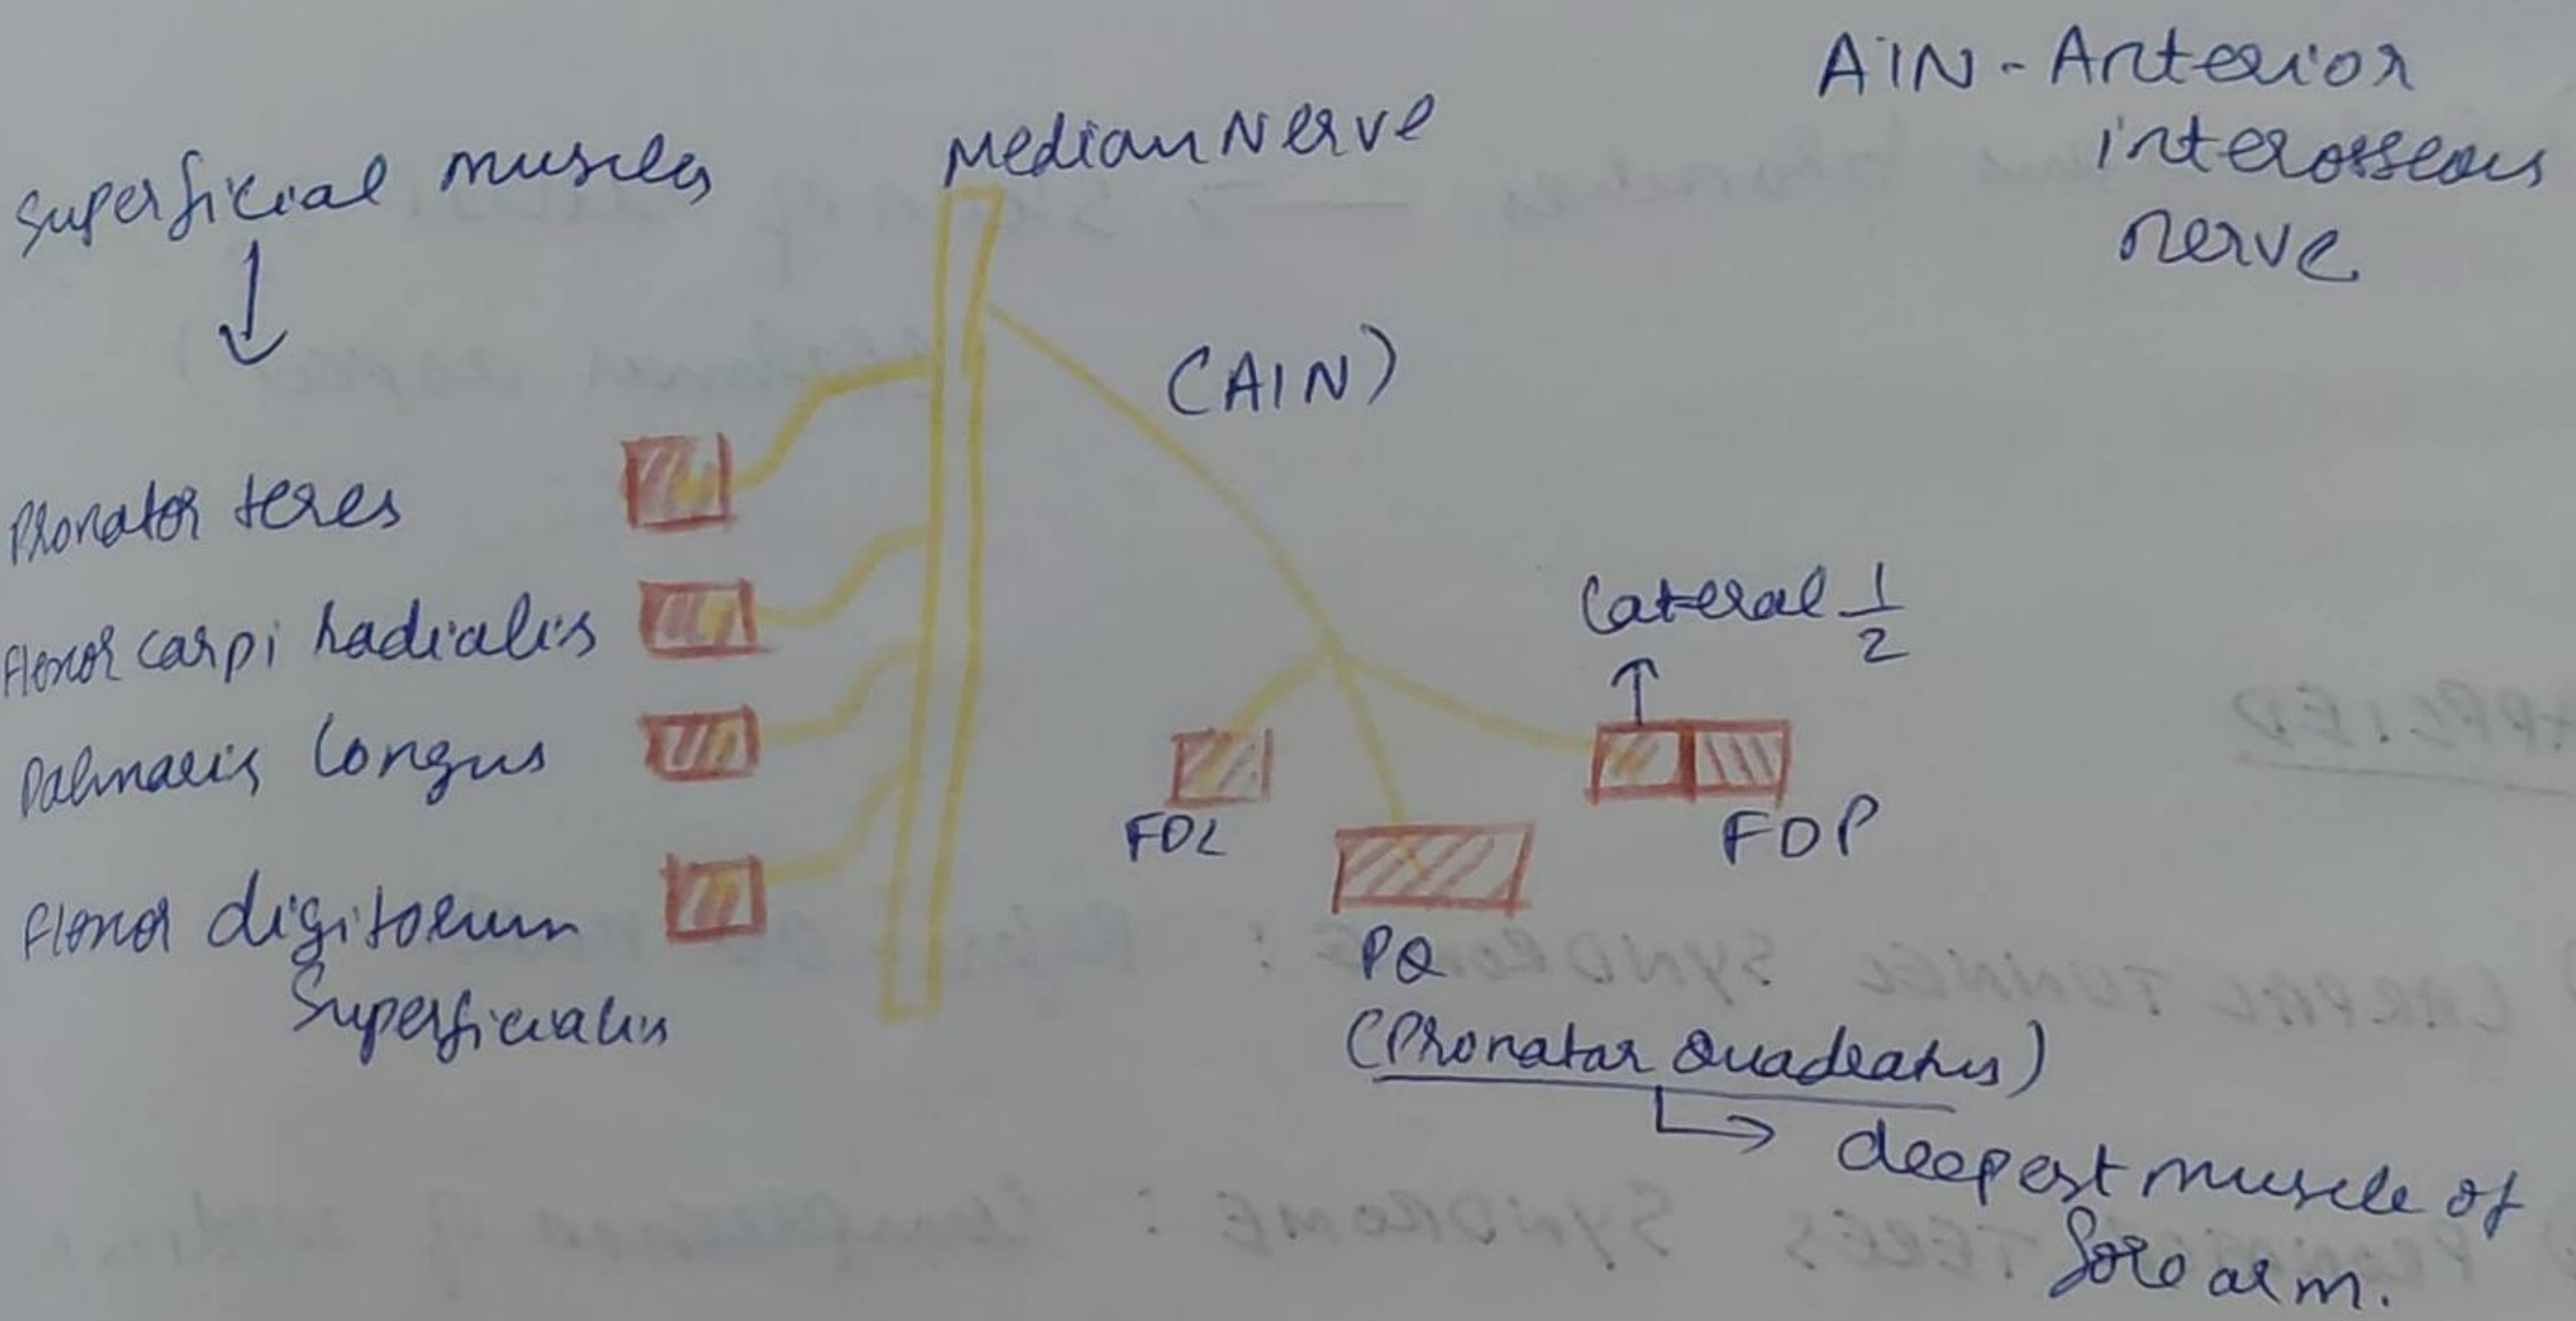 AIN - Anterior
interosseous
nerve
Median Nerve
Superficial muscles
(AIN)
Pronator teres
Flexor carpi radialis
Palmaris longus
Flexor digitorum
Superficialis
Lateral 1/2
FDL
FDP
PQ
(Pronatar Quadratus)
deepest muscle of
fore arm.
APPLIED
CARPAL TUNNEL SYNDROME :
TERES SYNDROME :